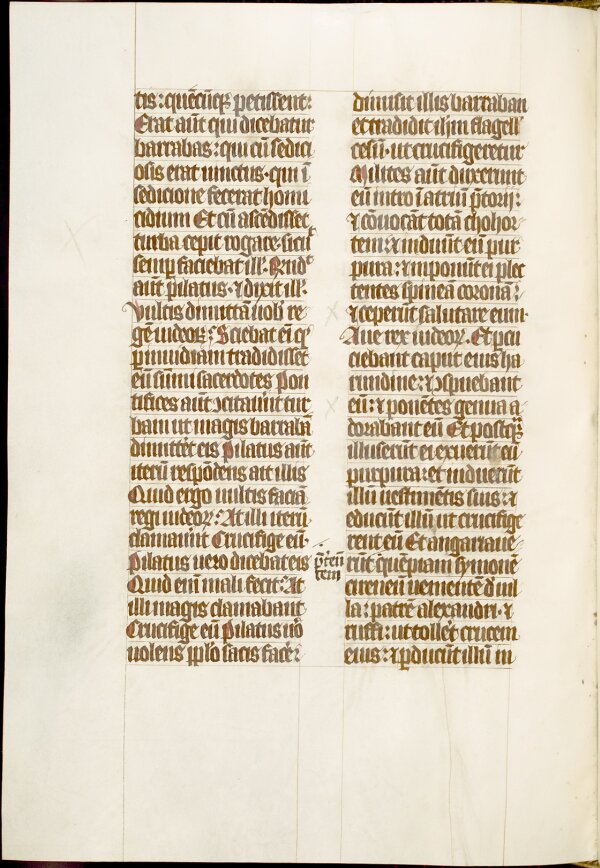 tis: quēcūqꝫ petissent:
Erat aūt qui dicebatur
barrabas: qui cū sedici
osis erat uinctus· qui ī
sedicione fecerat homi
cidium Et cū ascēdisset
turba cepit rogare sicut
semp faciebat ill'· Rūd'
aūt pilatus· ⁊ dixit ill'·
Vultis dimittā uob' re
gē iudeoꝝ: Sciebat eī qͥ
p inuidiam tradidissēt
eū sūmi sacerdotes Pon
tifices aūt ↄcitauūt tur
bam ut magis barrabā
dimittēt eis Pilatus aūt
iterū respōdens ait illis
Quid ergo uultis faciā
regi iudeoꝝ: At illi iterū
clamauūt Crucifige eū·
Pilatus uero dicebat eis
Quid enī mali fecit: At
illi magis clamabant
Crucifige eū Pilatus uō
uolens pplo satis facer̄
dimisit illis barraban
et tradidit ihm flagell'
cesū· ut crucifigeretur
Milites aūt duxerunt
eū intro ī atriū p̄torii:
⁊ cōuocāt totā chohor
tem: ⁊ induūt eū pur
pura: ⁊ inponūt ei plec
tentes spineā coronā:
⁊ ceperūt salutare eum·
Aue rex iudeoꝝ· Et pcu
ciebant caput eius ha
rundine: ⁊ ↄspuebant
eū: ⁊ ponētes genua a
dorabant eū Et postqꝫ
illuserūt ei exuerūt eū
purpura: et induerūt
illū uestimētis suis: ⁊
educūt illū ut crucifige
rent eū Et angariaue
p̄tereū
tem
rūt quēpiam symonē
cireneū ueniente d' uil
la: patrē alexandri· ⁊
ruffi: ut tollēt crucem
eius: ⁊ pducūt illū in